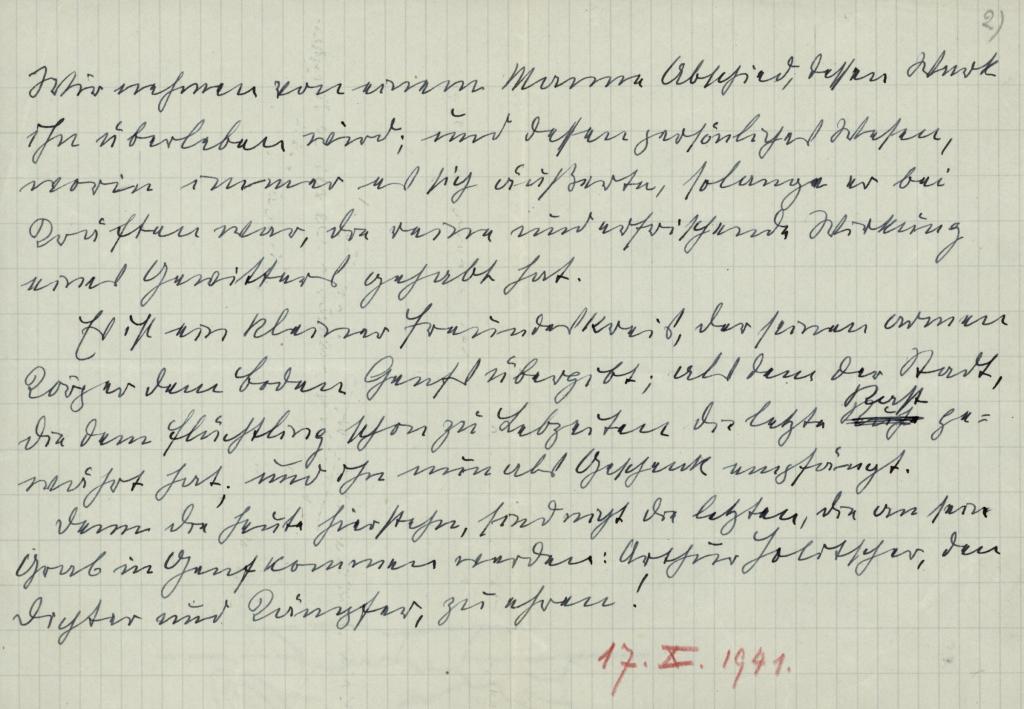 2)
Wir nehmen von einem Manne Abschied, dessen Werk
ihn überleben wird; und dessen persönliches Wesen,
worin immer es sich äußerte, solange er bei
Kräften war, die reine und erfrischende Wirkung
eines Gewitters gehabt hat.
Es ist ein kleiner Freundeskreis, der seinen armen
Körper dem Boden Genfs übergibt; als dem der Stadt,
die dem Flüchtling schon zu Lebzeiten die letzte Rast ge=
währt hat, und ihn nun als Geschenk empfängt.
Denn die heute hierstehn, sind nicht die letzten, die an sein
Grab in Genf kommen werden: Arthur Holitscher, den
Dichter und Kämpfer, zu ehren!
17. X. 1941.